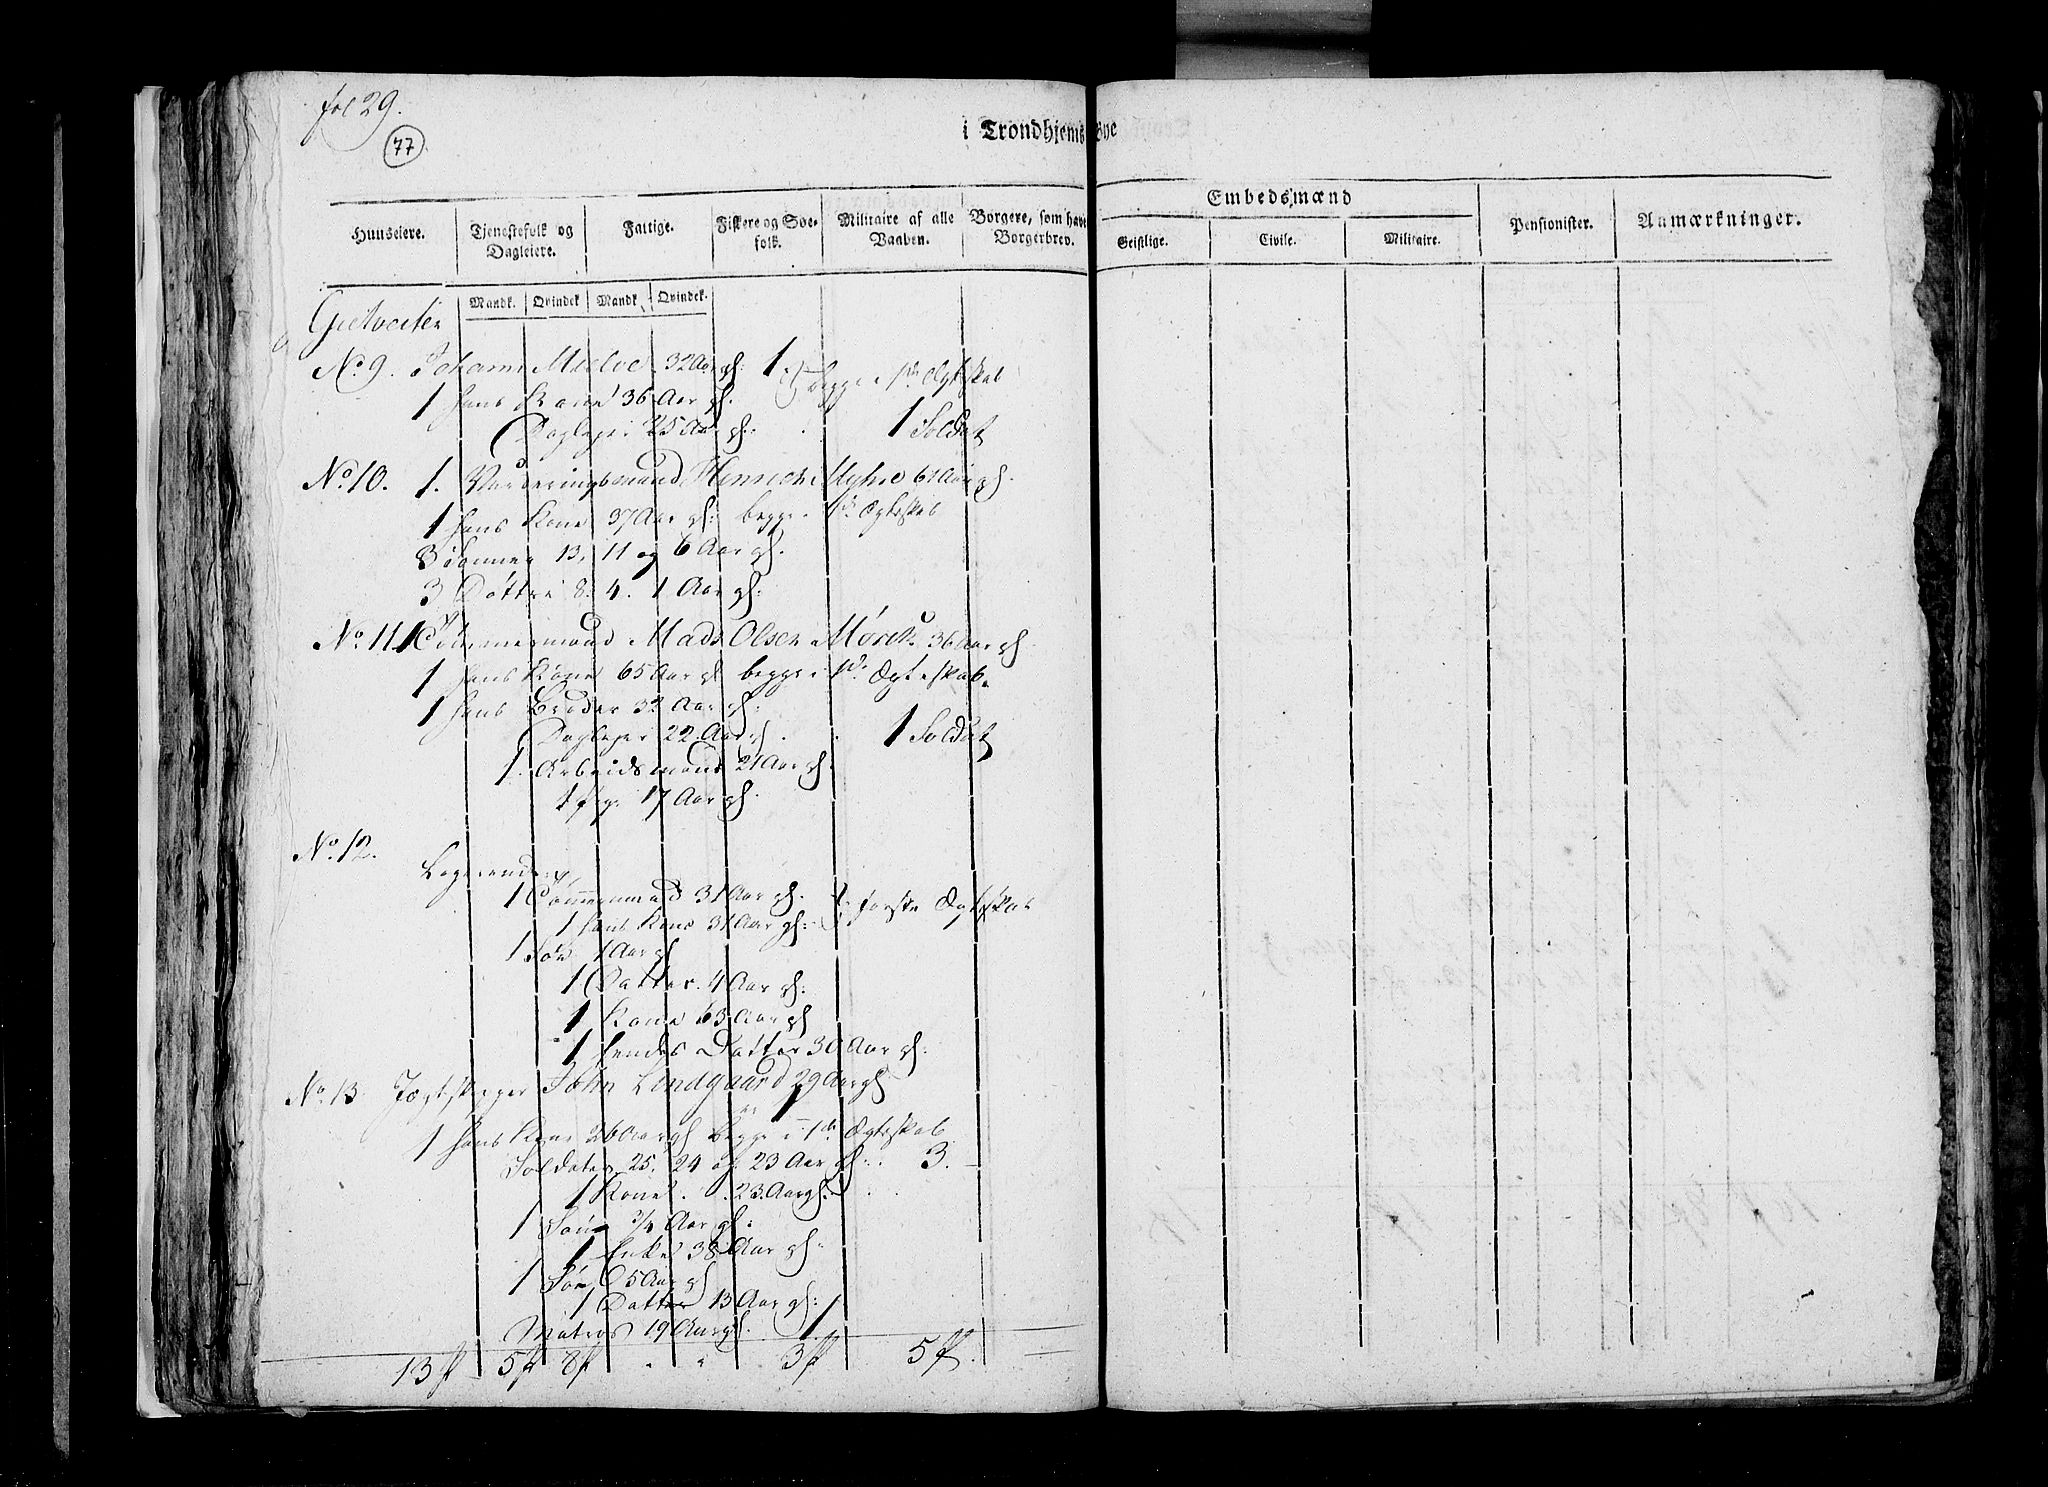 fol 29.
77
i Trondhjems Bye
Huuseiere.
Tjenestefolk og Dagleiere.
Fattige.
Fiskere og Søe-folk.
Militaire af alle Vaaben.
Borgere, som have Borgerbrev.
Embedsmænd
Geistlige.
Civile.
Militaire.
Pensionister.
Anmærkninger.
Mandk. Qvindek Mandk Qvindek.
No. 9. Johann 32 Aar gl: 1. begge i 1ste Ægteskab
1 hans Kone 36 Aar gl.
Dagleyer 25 Aar gl: 1 Soldat
No. 10. 1. Vurderingsmand Henrich Myhre 61 Aar gl.
1 hans Kone 37 Aar gl: begge i 1ste Ægteskab
3 Sønner 13, 11 og 6 Aar gl.
3 Døttre 8. 4. 1 Aar gl:
No. 11. 1 Tømmermand Mads Olsen Mørch 36 Aar gl
1 hans Kone 65 Aar gl begge i 1ste Ægteskab.
1 hans Broder 32 Aar gl:
Dagleyer 22 Aar gl. 1 Soldat
1. Arbeidsmand 21 Aar gl.
1 17 Aar gl.
No. 12.
Logerende
1 Tømmermand 31 Aar gl. i første Ægteskab
1 hans Kone 31 Aar gl:
1 Søn 1 Aar gl
1 Datter 4 Aar gl:
1 Kone 63 Aar gl
1 hendes Datter 30 Aar gl:
No. 13 Jægtskipper John Lindgaard 29 Aar gl 1
1 hans Kone 26 Aar gl begge i 1ste Ægteskab
Soldater 25, 24 og 23 Aar gl: 3.
1 Kone 23 Aar gl.
1 Søn 3/4 Aar gl:
1 Enke 38 Aar gl:
1 Søn 5 Aar gl
1 Datter 13 Aar gl:
Matros 19 Aar gl. 1
13 5 8 " " 3 5